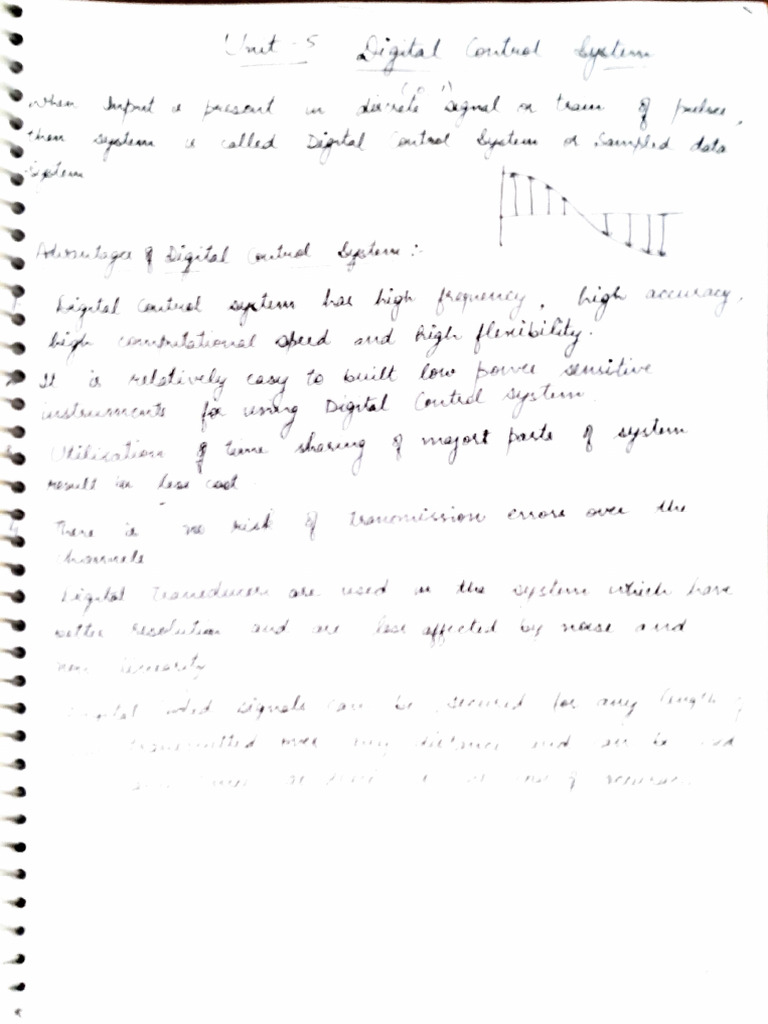 Unit - 5 Digital Control System
When Input is present in discrete signal or train of pulses,
then system is called Digital Control System or Sampled data
System
Advantages of Digital Control System :-
Digital Control system has high frequency, high accuracy,
high computational speed and high flexibility.
It is relatively easy to built low power sensitive
instruments for using Digital Control System.
Utilisation of time sharing of majort parts of system
result in less cost.
There is no risk of transmission errors over the
channels
Digital Transducers are used in the system which have
better resolution and are less affected by noise and
non linearity
signals can be secured for any length
transmitted over any distance and
of accuracy